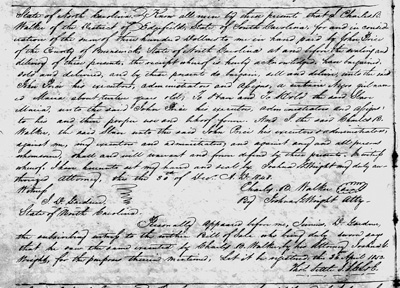 State of North Carolina Know all men by these presents that I Charles B.
Walker of the District of Edgefield, State of South Carolina, for and in consid-
eration of the sum of three hundred Dollars to me in hand paid by John
of the County of Brunswick State of North Carolina at and before the sealing and
delivery of these presents, the receipt whereof is hereby acknowledged, have bargained,
sold and delivered, and by these presents do bargain, sell and deliver unto the said
John his executors, administrators and assigns, a certain negro girl nam-
ed Maria about twelve years old; To Have and to Hold the said Slave
Maria, unto the said John his executors, administrators and assigns
to his and their proper use and behoof forever. And I the said Charles B.
Walker, the said Slave unto the said John his executors & administrators,
against me, my executors and administrators, and against any and all persons
whomsoever, shall and will warrant and forever defend by these presents. In witness
whereof I have hereunto set my hand and seal by Joshua G. Wright my duly au-
thorized Attorney, this the 30th of Decr. A.D.
Witness Charles B. Walker
J. D. Gardner By Joshua G. Wright Atty
State of North Carolina
Personally appeared before me, Junius D. Gardner,
the subscribing witness to the within Bill of Sale who being duly sworn says
that he saw the same executed by Charles B. Walker by his Attorney Joshua G.
Wright, for the purposes therein mentioned. Let it be registered the April 1852